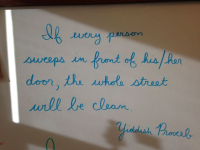 If every person
sweeps in front of his/her
door, the whole street
will be clean.
Yiddish Proverb